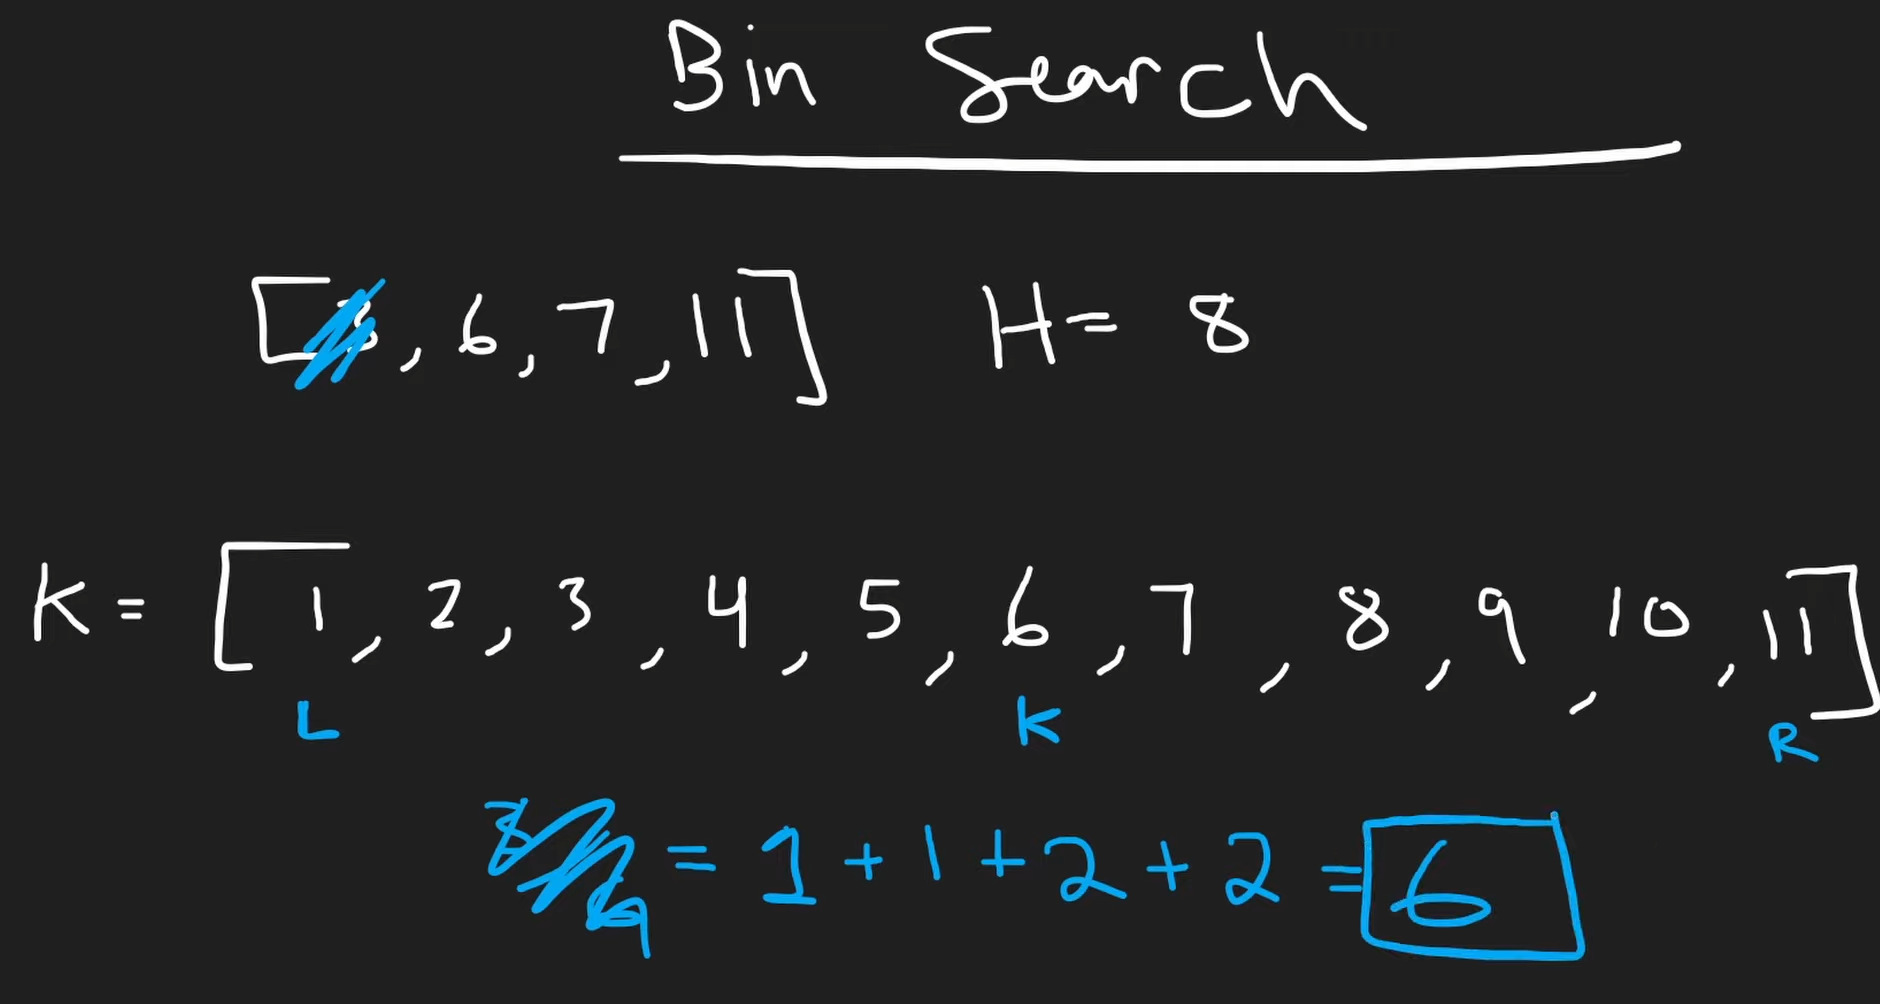 Bin Search
[3, 6, 7, 11] H = 8
K = [1, 2, 3, 4, 5, 6, 7, 8, 9, 10, 11]
L K R
= 1 + 1 + 2 + 2 = 6